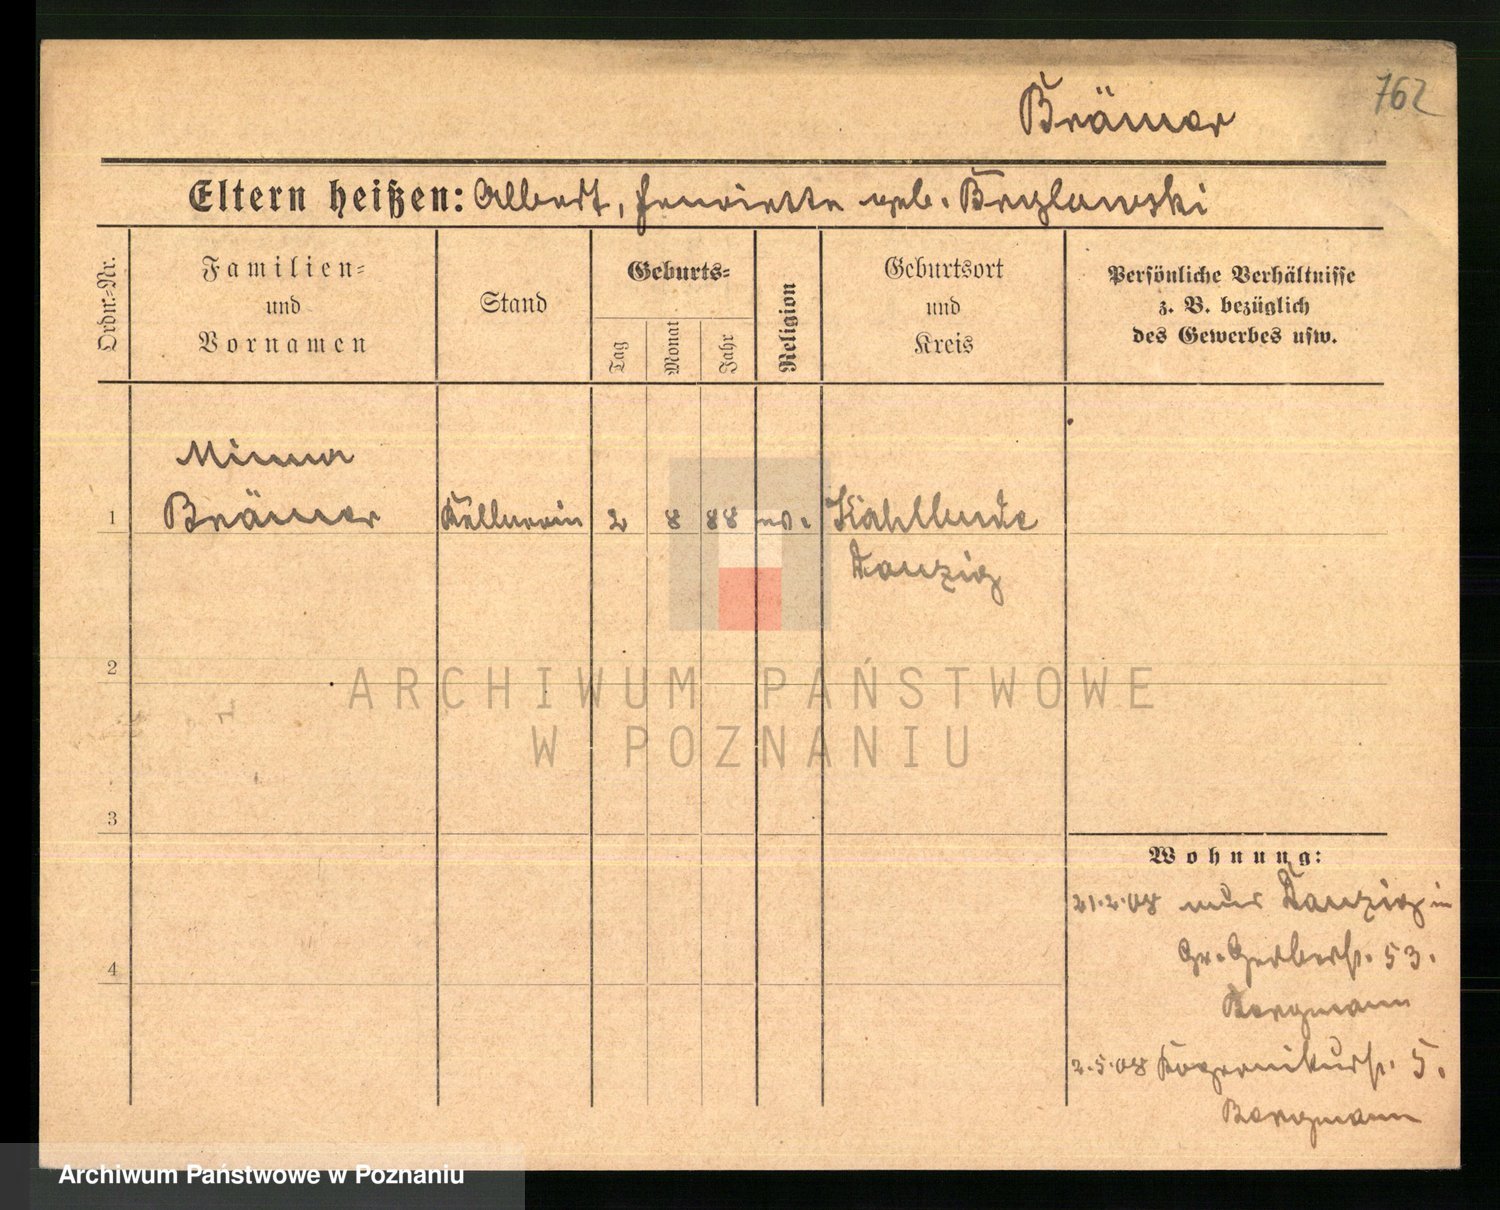 762
Brämer
Eltern heißen: Albert, Henriette geb. Bryglowski
Ordn.-Nr.
Familien-
und
Vornamen
Stand
Geburts-
Tag
Monat
Jahr
Religion
Geburtsort
und
Kreis
Persönliche Verhältnisse
z. B. bezüglich
des Gewerbes usw.
Minna
1 Brämer Kellnerin 2 8 88 ev. Kahlbude
Danzig
2
ARCHIWUM PAŃSTWOWE
W POZNANIU
3
Wohnung:
21.2.08 aus Danzig in
Gr. Gerberst. 53.
Bergmann
4
2.5.08 Kopernikusst. 5.
Bergmann
Archiwum Państwowe w Poznaniu